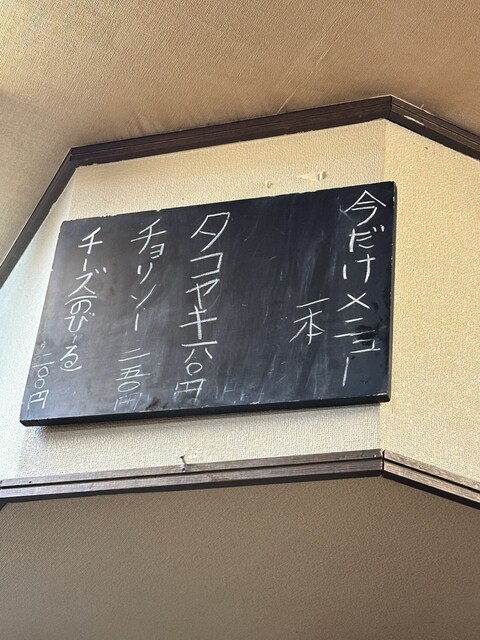 今だけメニュー
一本
タコヤキ六〇円
チョリソー二五〇円
チーズ(のび〜る)二〇〇円